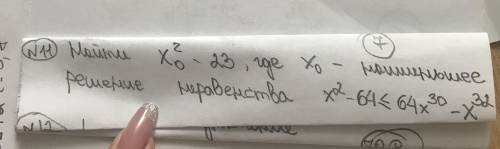 7
N11 Найти x₀² - 23, где x₀ - наименьшее
решение неравенства x² - 64 ≤ 64x³⁰ - x³²
N12